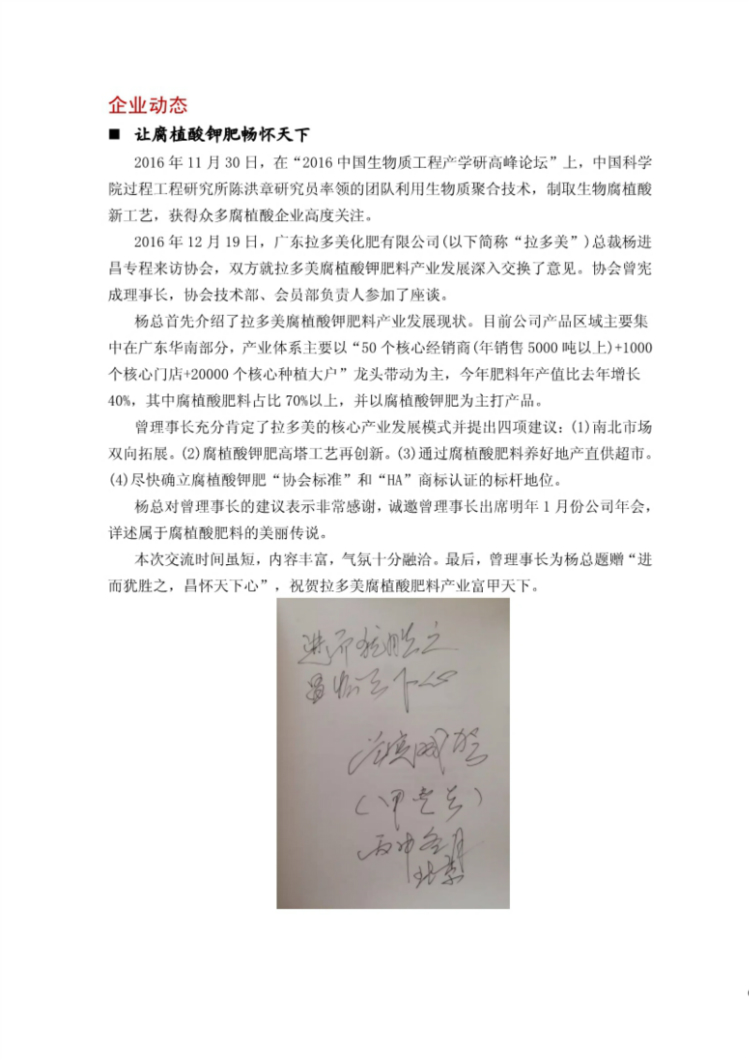 企业动态
■ 让腐植酸钾肥畅怀天下
2016 年 11 月 30 日，在“2016 中国生物质工程产学研高峰论坛”上，中国科学
院过程工程研究所陈洪章研究员率领的团队利用生物质聚合技术，制取生物腐植酸
新工艺，获得众多腐植酸企业高度关注。
2016 年 12 月 19 日，广东拉多美化肥有限公司(以下简称“拉多美”)总裁杨进
昌专程来访协会，双方就拉多美腐植酸钾肥料产业发展深入交换了意见。协会曾宪
成理事长，协会技术部、会员部负责人参加了座谈。
杨总首先介绍了拉多美腐植酸钾肥料产业发展现状。目前公司产品区域主要集
中在广东华南部分，产业体系主要以“50 个核心经销商(年销售 5000 吨以上)+1000
个核心门店+20000 个核心种植大户”龙头带动为主，今年肥料年产值比去年增长
40%，其中腐植酸肥料占比 70%以上，并以腐植酸钾肥为主打产品。
曾理事长充分肯定了拉多美的核心产业发展模式并提出四项建议：(1)南北市场
双向拓展。(2)腐植酸钾肥高塔工艺再创新。(3)通过腐植酸肥料养好地产直供超市。
(4)尽快确立腐植酸钾肥“协会标准”和“HA”商标认证的标杆地位。
杨总对曾理事长的建议表示非常感谢，诚邀曾理事长出席明年 1 月份公司年会，
详述属于腐植酸肥料的美丽传说。
本次交流时间虽短，内容丰富，气氛十分融洽。最后，曾理事长为杨总题赠“进
而犹胜之，昌怀天下心”，祝贺拉多美腐植酸肥料产业富甲天下。
进而犹胜之
昌怀天下心
丙申冬月
北京